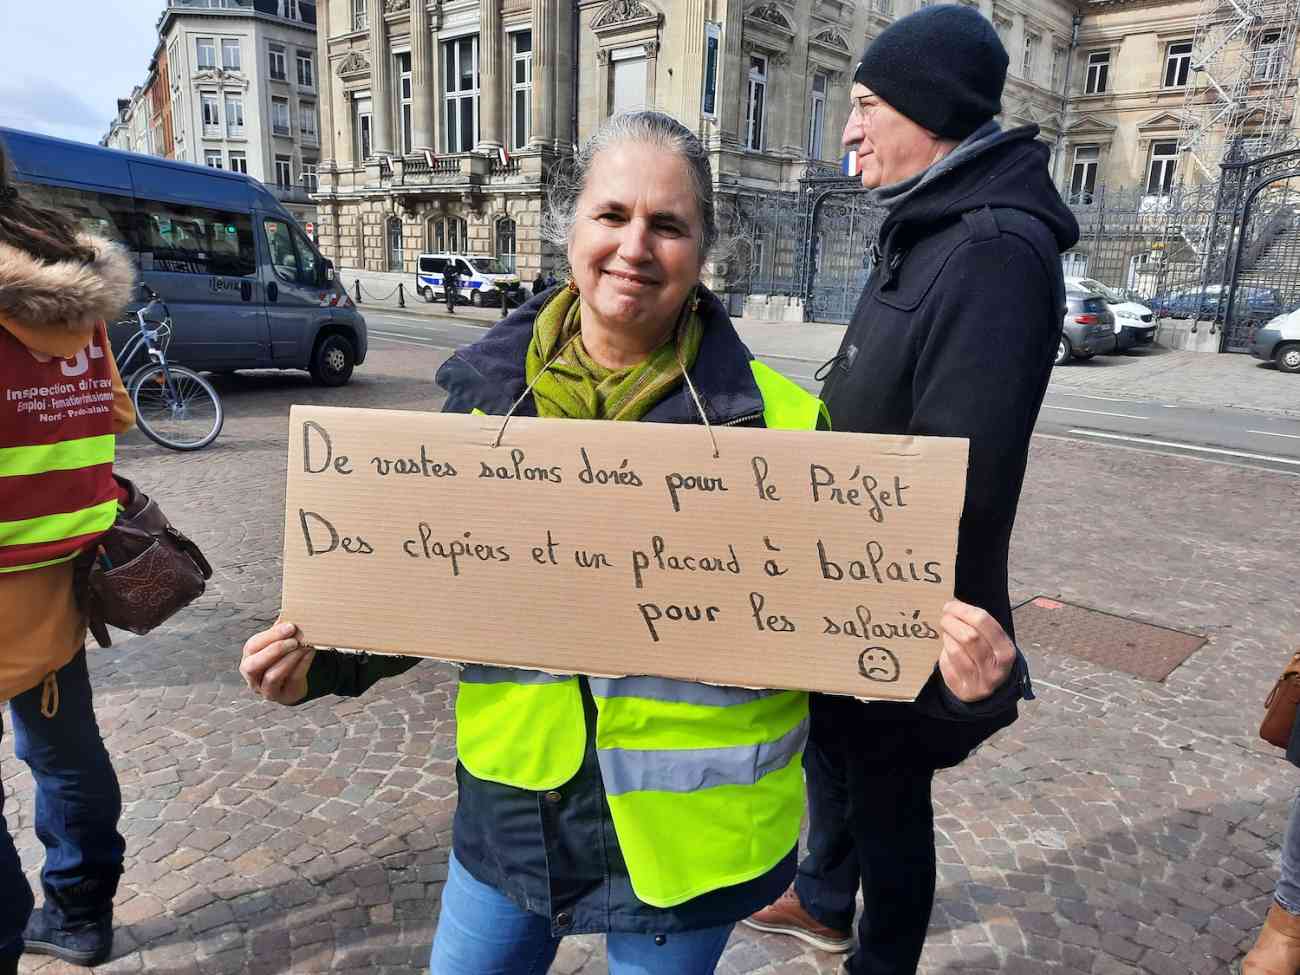 De vastes salons dorés pour le Préfet
Des clapiers et un placard à balais
pour les salariés
Inspection du Travail
Emploi - Formation
Nord - Pas-de-Calais
ilévia